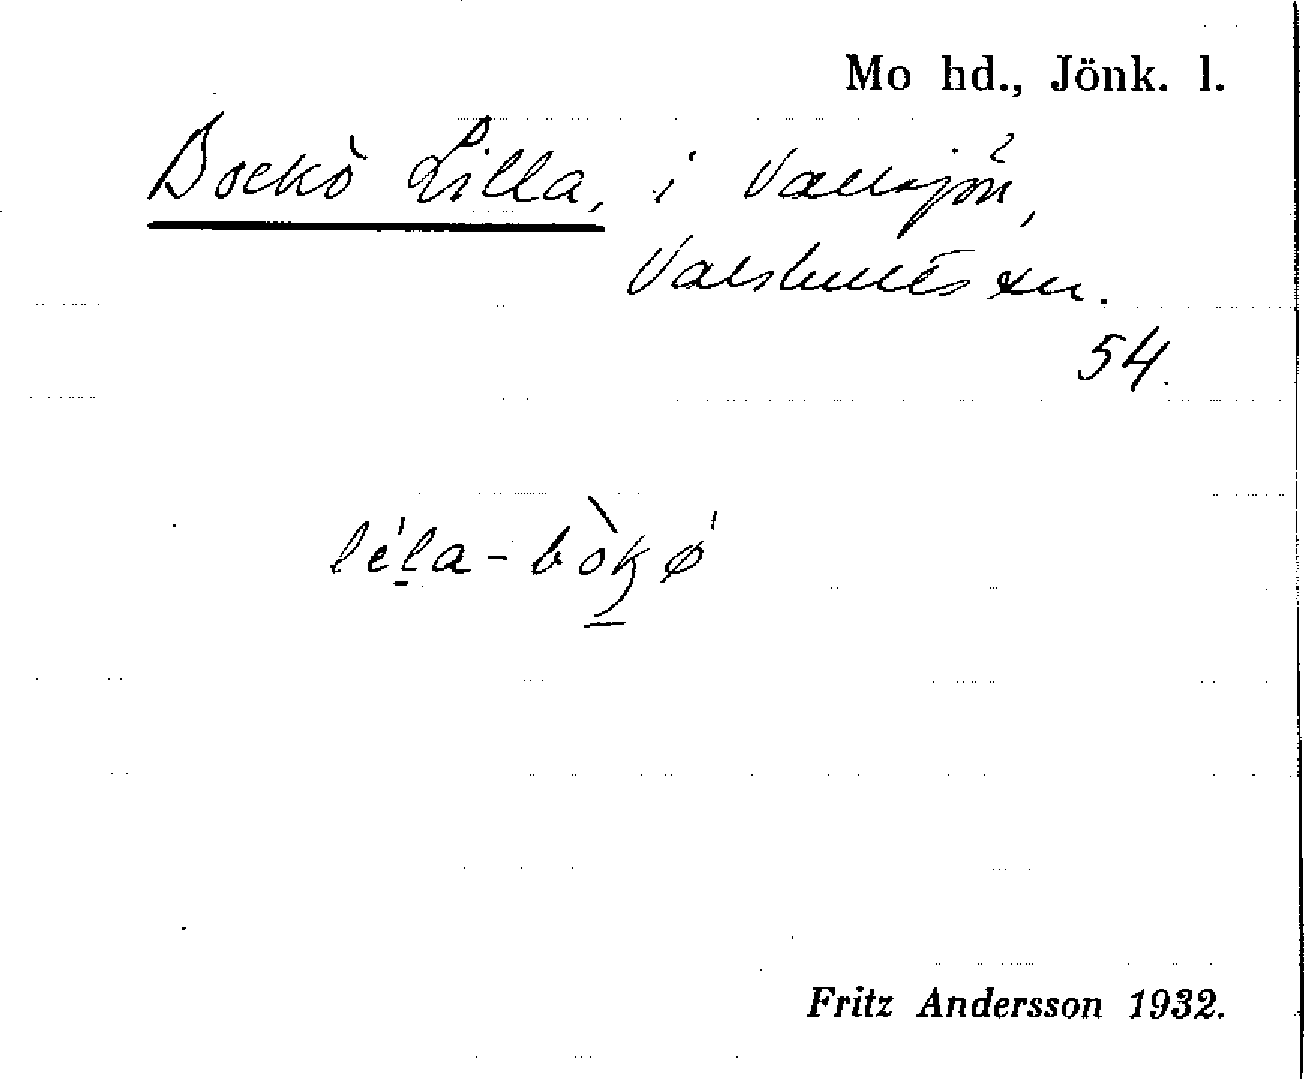 Mo hd., Jönk. l.
Bockö Lilla, i Vallsjön,
Valshults sn.
54.
léla-bòkø
Fritz Andersson 1932.